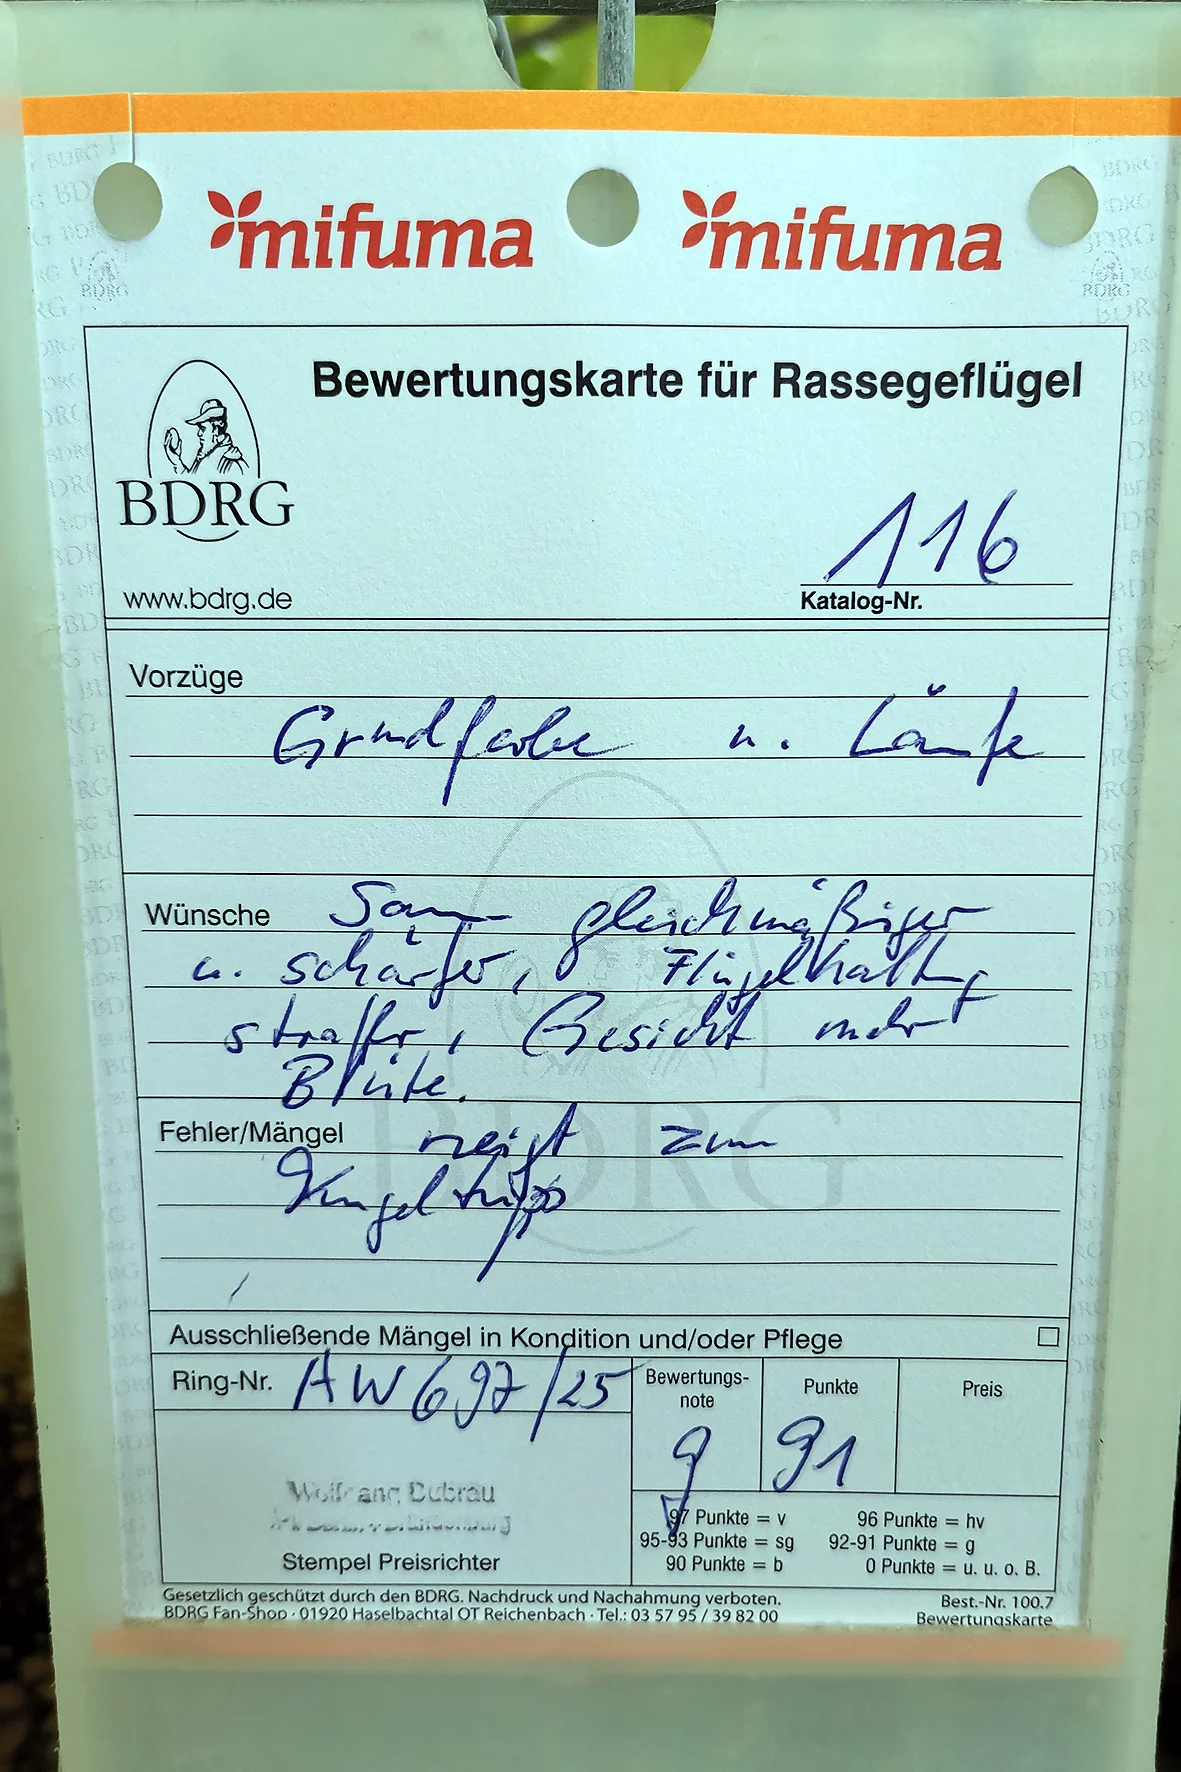 mifuma mifuma
Bewertungskarte für Rassegeflügel
BDRG
116
www.bdrg.de
Katalog-Nr.
Vorzüge
Grundfarbe u. Läufe
Wünsche Saum gleichmäßiger
u. schärfer, Flügelhaltung
straffer, Gesicht mehr
Blüte.
Fehler/Mängel neigt zum
Kugeltyp
Ausschließende Mängel in Kondition und/oder Pflege
Ring-Nr. AW 697/25
Bewertungs-
note
Punkte
Preis
g 91
Wolfgang Dubrau
Stempel Preisrichter
97 Punkte = v 96 Punkte = hv
95-93 Punkte = sg 92-91 Punkte = g
90 Punkte = b 0 Punkte = u. u. o. B.
Gesetzlich geschützt durch den BDRG. Nachdruck und Nachahmung verboten.
BDRG Fan-Shop · 01920 Haselbachtal OT Reichenbach · Tel.: 03 57 95 / 39 82 00
Best.-Nr. 100.7
Bewertungskarte